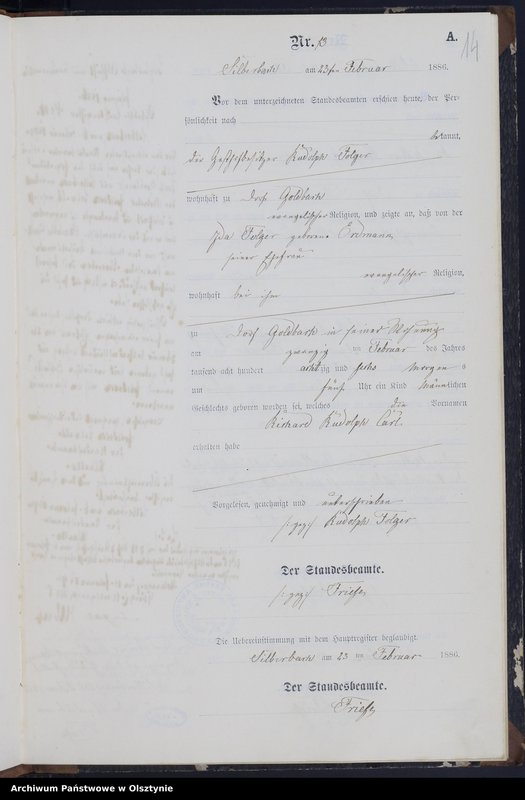 Nr. 13
A.
14
Silberbach am 23ten Februar 1886.
Vor dem unterzeichneten Standesbeamten erschien heute, der Per-
sönlichkeit nach
bekannt,
der Gasthofbesitzer Rudolph Folger
wohnhaft zu Dorf Goldbach
evangelischer Religion, und zeigte an, daß von der
Ida Folger geborene Erdmann
seiner Ehefrau
evangelischer Religion,
wohnhaft bei ihm
zu Dorf Goldbach in seiner Wohnung
am zwanzig ten Februar des Jahres
tausend acht hundert achtzig und sechs Morgen s
um fünf Uhr ein Kind männlichen
Geschlechts geboren worden sei, welches die Vornamen
Richard Rudolph Carl
erhalten habe
Vorgelesen, genehmigt und unterschrieben
gez. Rudolph Folger
Der Standesbeamte.
gez. Friese
Die Uebereinstimmung mit dem Hauptregister beglaubigt.
Silberbach am 23 ten Februar 1886.
Der Standesbeamte.
Friese
Archiwum Państwowe w Olsztynie